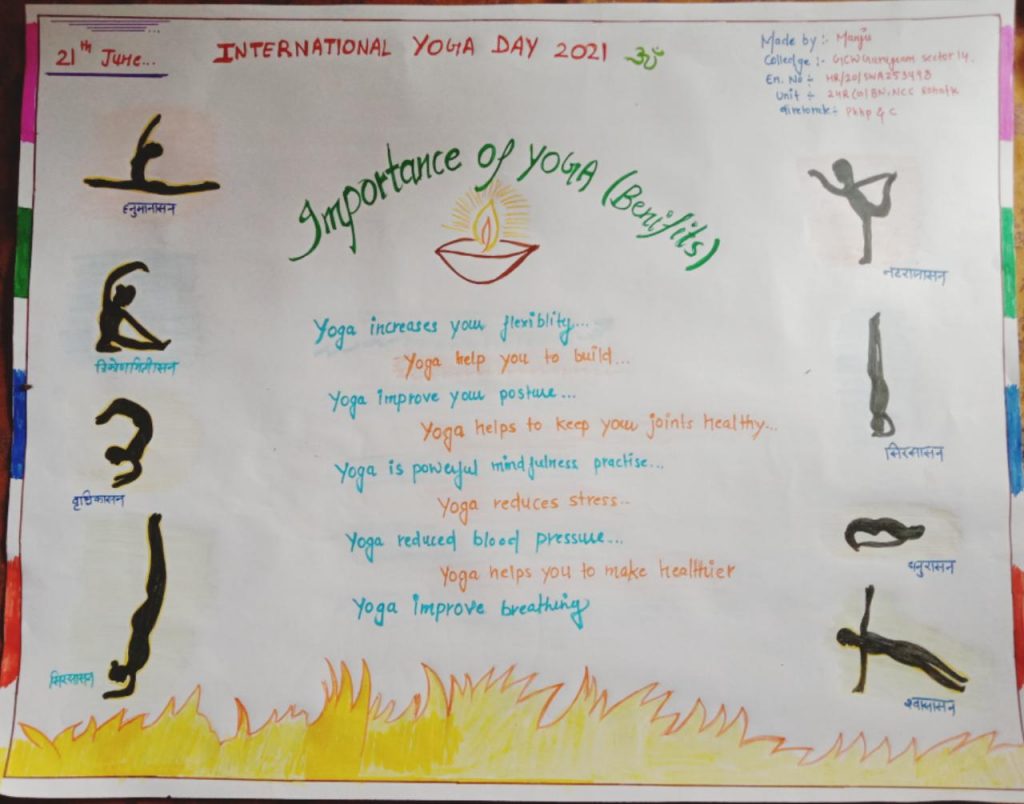 21th June...
INTERNATIONAL YOGA DAY 2021 ॐ
Made by :- Manju
Colledge :- GCW Gurugram sector 14,
En. No :- HR/20/SWA253498
Unit :-
diretorate :- PHHP & C
Importance of YOGA (Benifits)
हनुमानासन
नटराजासन
Yoga increases your flexiblity...
Yoga help you to build...
Yoga improve your posture...
Yoga helps to keep your joints healthy...
Yoga is powerful mindfulness practise...
Yoga reduces stress..
Yoga reduced blood pressure...
Yoga helps you to make healthier
Yoga improve breathing
वृश्चिकासन
सिरसासन
धनुरासन
सिरसासन